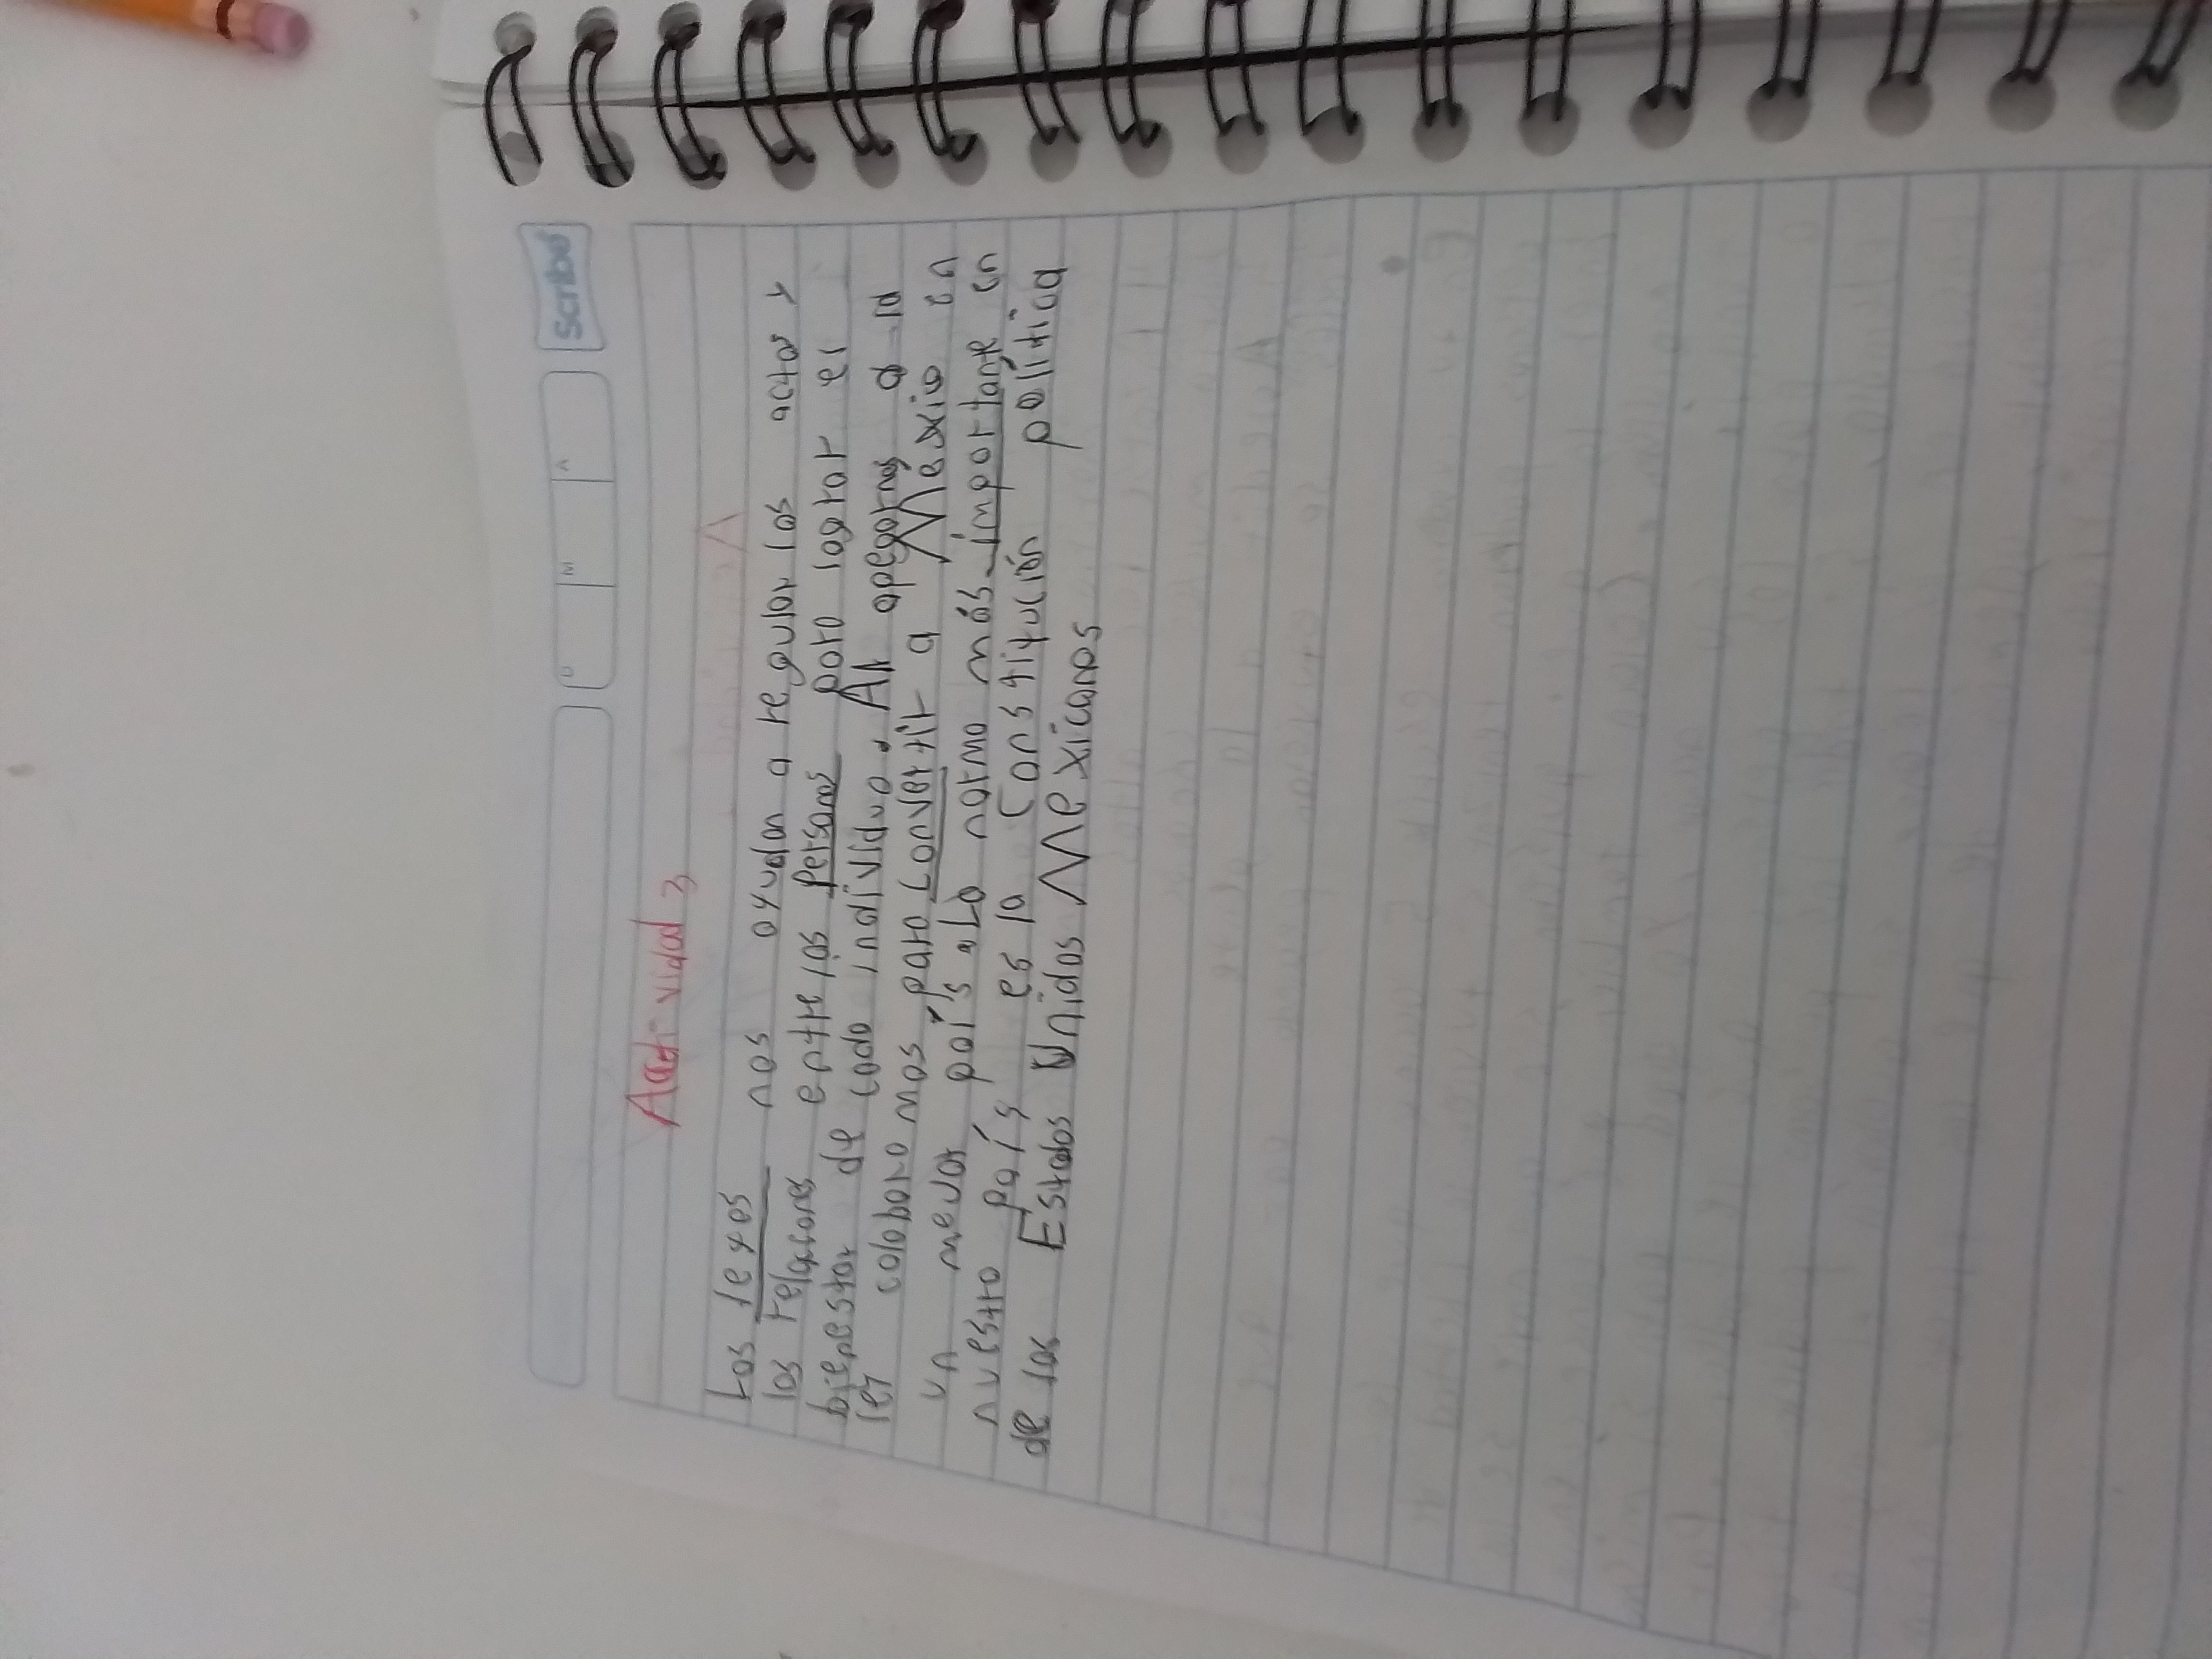 Scribe
D M A
Actividad 3
Las leyes nos ayudan a regular los actos y
las relaciones entre las personas para lograr el
bienestar de cada individuo. Al apegarnos a la
ley colaboramos para convertir a Mexico en
un mejor país. La norma más importante en
nuestro país es la Constitución política
de los Estados Unidos Mexicanos